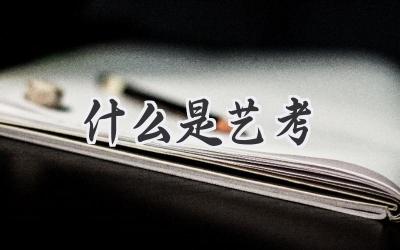 什么是艺考